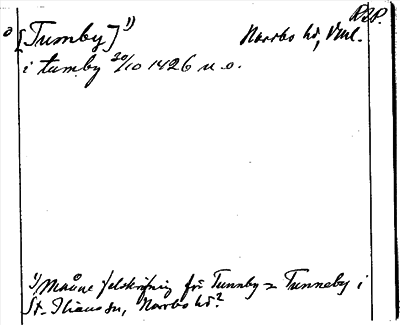 RAP.
[Tumby]¹⁾ Norrbo hd, Vml.
i tumby 20/10 1426 n. o.
1) Månne felskrifning för Tunnby = Tunneby i
St. Ilians sn, Norrbo hd?